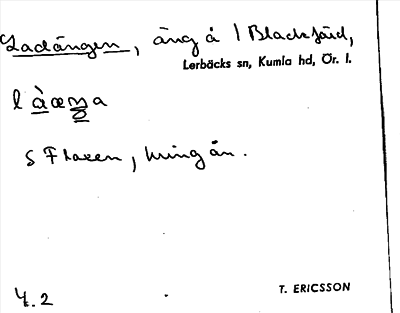 Ladängen, äng å 1 Blackfäid,
Lerbäcks sn, Kumla hd, Ör. l.
l à æŋ a
S Flaxen, kring ån.
4.2
T. ERICSSON